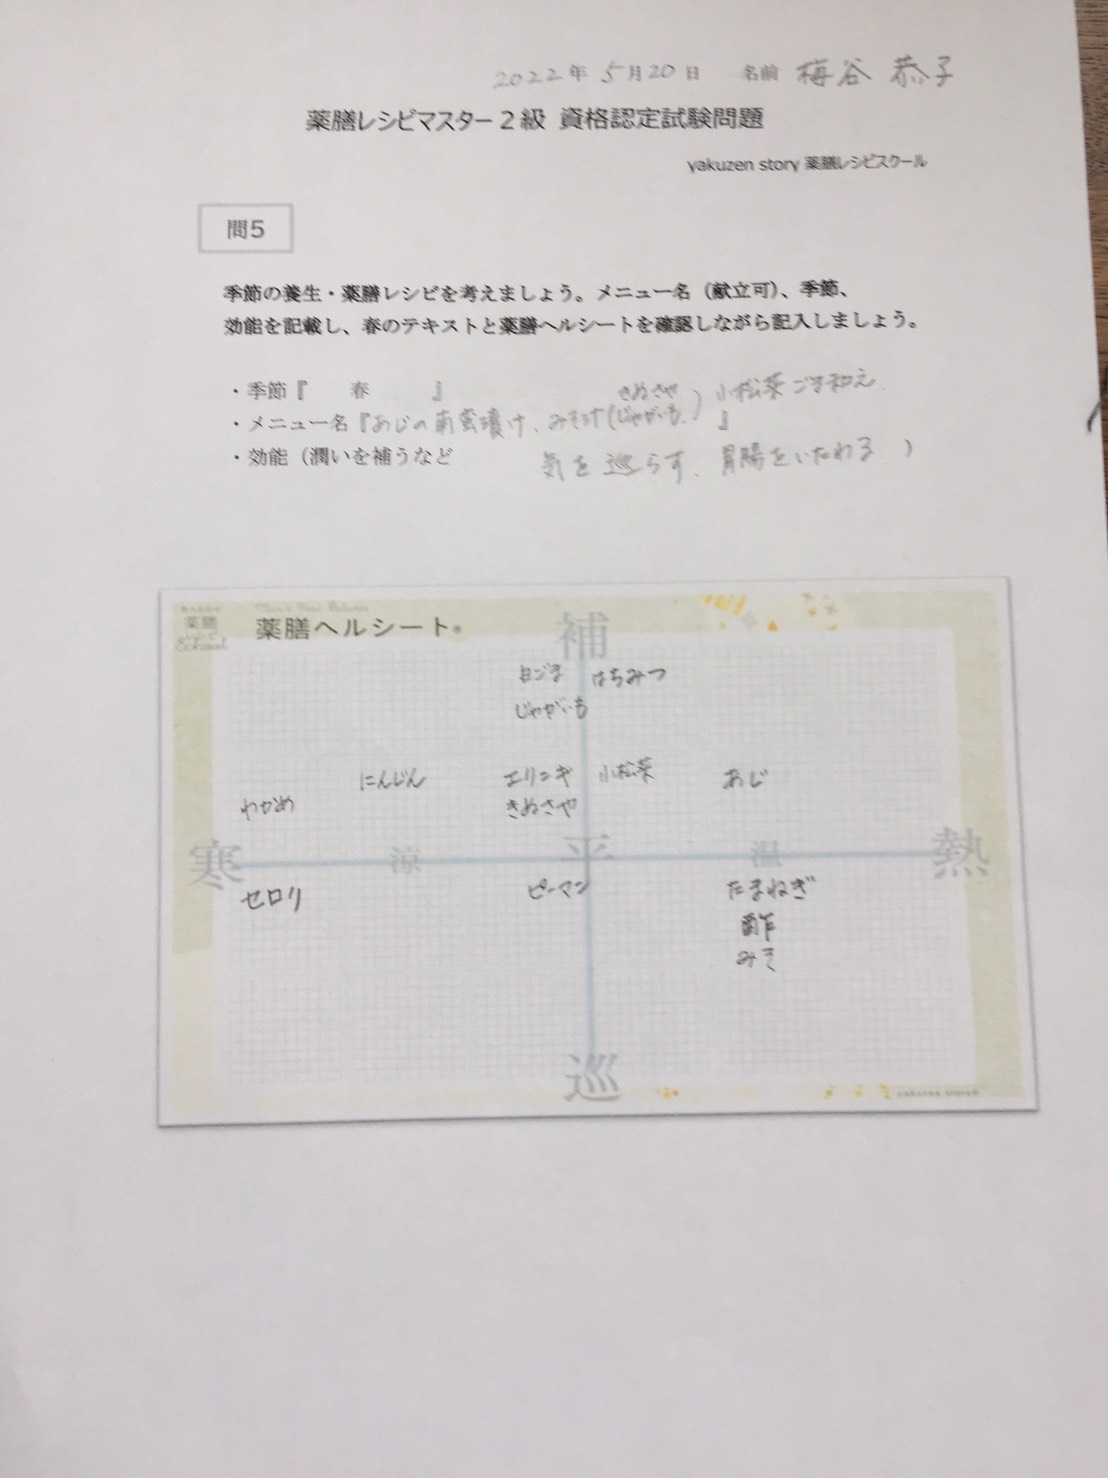 2022年 5月20日 名前 梅谷 恭子
薬膳レシピマスター2級 資格認定試験問題
yakuzen story 薬膳レシピスクール
問5
季節の養生・薬膳レシピを考えましょう。メニュー名（献立可）、季節、
効能を記載し、春のテキストと薬膳ヘルシートを確認しながら記入しましょう。
・季節『 春 』
きぬさや 小松菜ごま和え
・メニュー名『あじの南蛮漬け、みそ汁(じゃがいも、) 』
・効能（潤いを補うなど 気を巡らす、胃腸をいたわる ）
薬膳
School
薬膳ヘルシート®
補
白ごま はちみつ
じゃがいも
にんじん エリンギ 小松菜 あじ
わかめ きぬさや
寒 涼 平 温 熱
セロリ ピーマン たまねぎ
酢
みそ
巡
yakuzen story